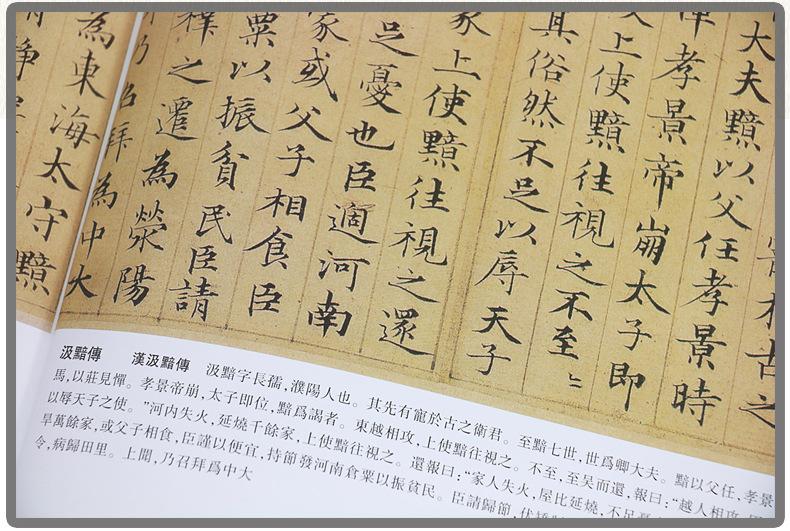 於古之
大夫黯以父任孝景時
憚孝景帝崩太子即
上使黯往視之不至〻
其俗然不足以辱天子
家上使黯往視之還
足憂也臣適河南
家或父子相食臣
粟以振貧民臣請
釋之遷為滎陽
乃召拜為中大
為東海太守黯
汲黯傳　漢汲黯傳　汲黯字長孺,濮陽人也。其先有寵於古之衛君。至黯七世,世爲卿大夫。黯以父任,孝景
馬,以莊見憚。孝景帝崩,太子即位,黯爲謁者。東越相攻,上使黯往視之。不至,至吴而還,報曰:“越人相攻,
以辱天子之使。”河内失火,延燒千餘家,上使黯往視之。還報曰:“家人失火,屋比延燒,不足
旱萬餘家,或父子相食,臣謹以便宜,持節發河南倉粟以振貧民。臣請歸節,伏
令,病歸田里。上聞,乃召拜爲中大